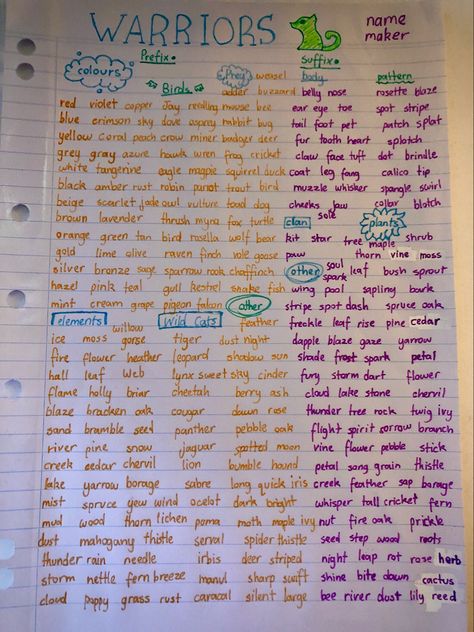 WARRIORS name
maker
Prefix• Suffix•
colours Prey weasel body pattern
Birds adder buzzard belly nose rosette blaze
red violet copper Jay mouse bee ear eye toe spot stripe
blue crimson sky dove osprey rabbit bug tail foot pet patch splat
yellow coral peach crow miner badger deer fur tooth heart splotch
grey gray azure hawk wren frog cricket claw face tuft dot brindle
white tangerine eagle magpie squirrel duck coat leg fang calico tip
black amber rust robin parrot trout bird muzzle whisker spangle swirl
beige scarlet jade owl vulture toad dog cheeks jaw collar blotch
brown lavender thrush myna fox turtle clan sole plants
orange green tan bird rosella wolf bear kit star tree maple shrub
gold lime olive raven finch vole goose paw thorn vine moss
silver bronze sage sparrow rook chaffinch other soul spark leaf bush sprout
hazel pink teal gull kestrel snake fish wing pool sapling bark
mint cream grape pigeon falcon other stripe spot dash spruce oak
elements willow Wild Cats feather freckle leaf rise pine cedar
ice moss gorse tiger dust night dapple blaze gaze yarrow
fire flower heather leopard shadow sun shade frost spark petal
hall leaf web lynx sweet sky cinder fury storm dart flower
flame holly briar cheetah berry ash cloud lake stone chervil
blaze bracken oak cougar dawn rose thunder tree rock twig ivy
sand bramble seed panther pebble oak flight spirit sorrow branch
river pine snow jaguar spotted moon vine flower pebble stick
creek cedar chervil lion bumble hound petal song grain thistle
lake yarrow borage sabre long quick iris creek feather sap borage
mist spruce yew wind ocelot dark bright whisper tall cricket fern
mud wood thorn lichen puma moth maple ivy nut fire oak prickle
dust mahogany thistle serval spider thistle seed step wood roots
thunder rain needle irbis deer striped night leap rot rose herb
storm nettle fern breeze manul sharp swift shine bite dawn cactus
cloud poppy grass rust caracal silent large bee river dust lily reed